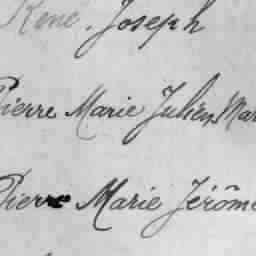 René, Joseph
Pierre Marie Julien Mar
Pierre Marie Jérôme